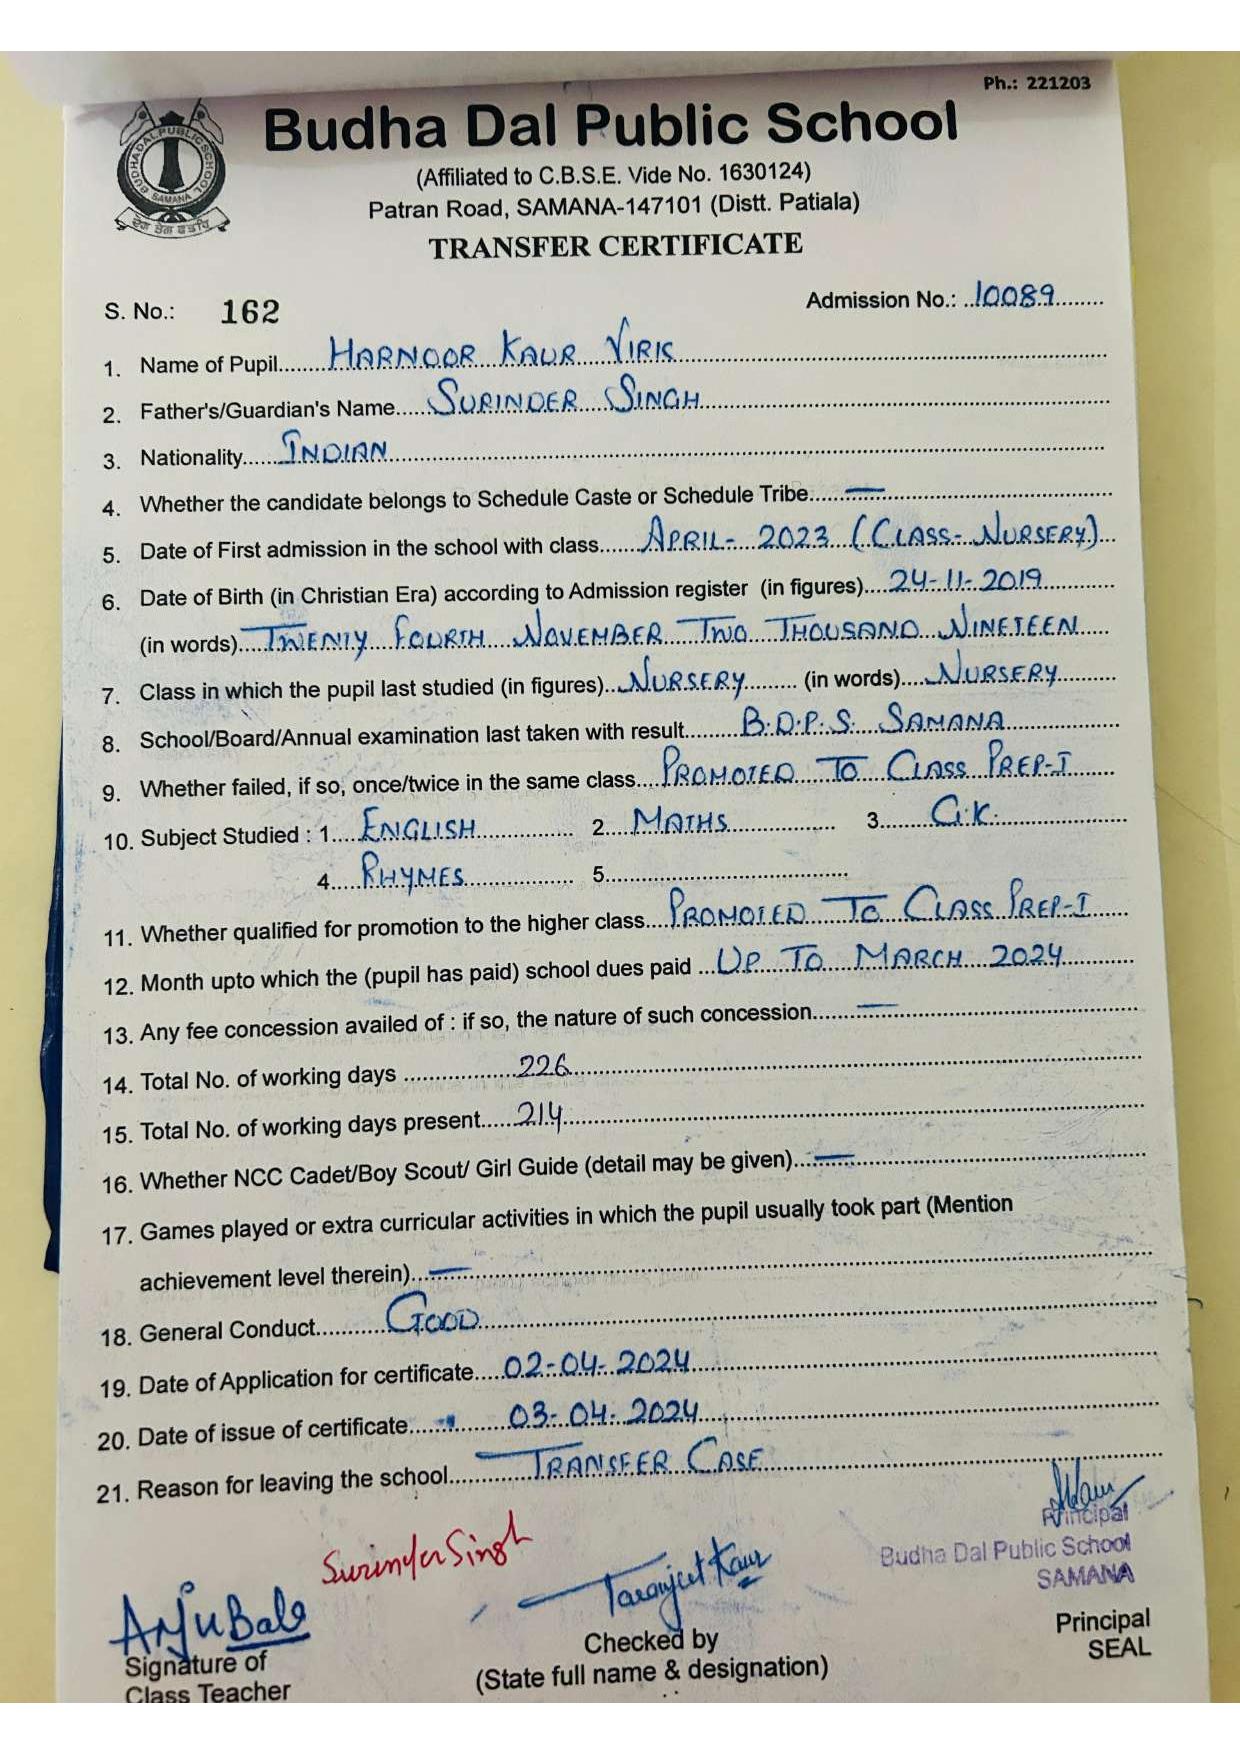 Ph.: 221203
Budha Dal Public School
(Affiliated to C.B.S.E. Vide No. 1630124)
Patran Road, SAMANA-147101 (Distt. Patiala)
TRANSFER CERTIFICATE
BUDHA DAL PUBLIC SCHOOL
SAMANA
S. No.: 162 Admission No.: 10089
1. Name of Pupil HARNOOR KAUR VIRK
2. Father's/Guardian's Name SURINDER SINGH
3. Nationality INDIAN
4. Whether the candidate belongs to Schedule Caste or Schedule Tribe —
5. Date of First admission in the school with class APRIL - 2023 (CLASS - NURSERY)
6. Date of Birth (in Christian Era) according to Admission register (in figures) 24-11-2019
(in words) TWENTY FOURTH NOVEMBER TWO THOUSAND NINETEEN
7. Class in which the pupil last studied (in figures) NURSERY (in words) NURSERY
8. School/Board/Annual examination last taken with result B.D.P.S. SAMANA
9. Whether failed, if so, once/twice in the same class PROMOTED TO CLASS PREP-I
10. Subject Studied : 1. ENGLISH 2. MATHS 3. G.K.
4. RHYMES 5.
11. Whether qualified for promotion to the higher class PROMOTED TO CLASS PREP-I
12. Month upto which the (pupil has paid) school dues paid UP TO MARCH 2024
13. Any fee concession availed of : if so, the nature of such concession —
14. Total No. of working days 226
15. Total No. of working days present 214
16. Whether NCC Cadet/Boy Scout/ Girl Guide (detail may be given) —
17. Games played or extra curricular activities in which the pupil usually took part (Mention
achievement level therein) —
18. General Conduct GOOD
19. Date of Application for certificate 02-04-2024
20. Date of issue of certificate 03-04-2024
21. Reason for leaving the school TRANSFER CASE
Surinder Singh
Anju Bala
Signature of
Class Teacher
Taranjeet Kaur
Checked by
(State full name & designation)
Principal
Budha Dal Public School
SAMANA
Principal
SEAL